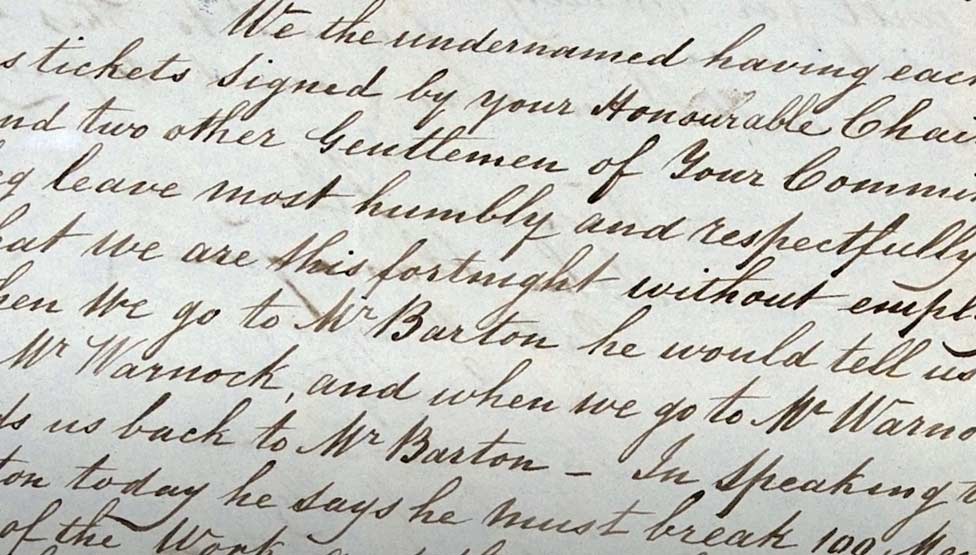 We the undernamed having eac
s tickets signed by your Honourable Chai
nd two other Gentlemen of Your Commi
g leave most humbly and respectfully
hat we are this fortnight without empl
hen we go to Mr Barton he would tell us
Mr Warnock, and when we go to Mr Warno
ds us back to Mr Barton – In speaking t
ton today he says he must break 100 Me
of the Work